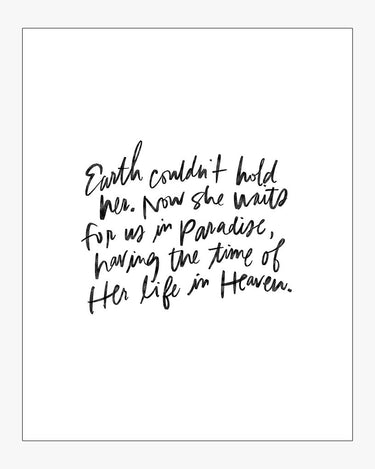 Earth couldn't hold
her. Now she waits
for us in Paradise,
having the time of
Her life in Heaven.